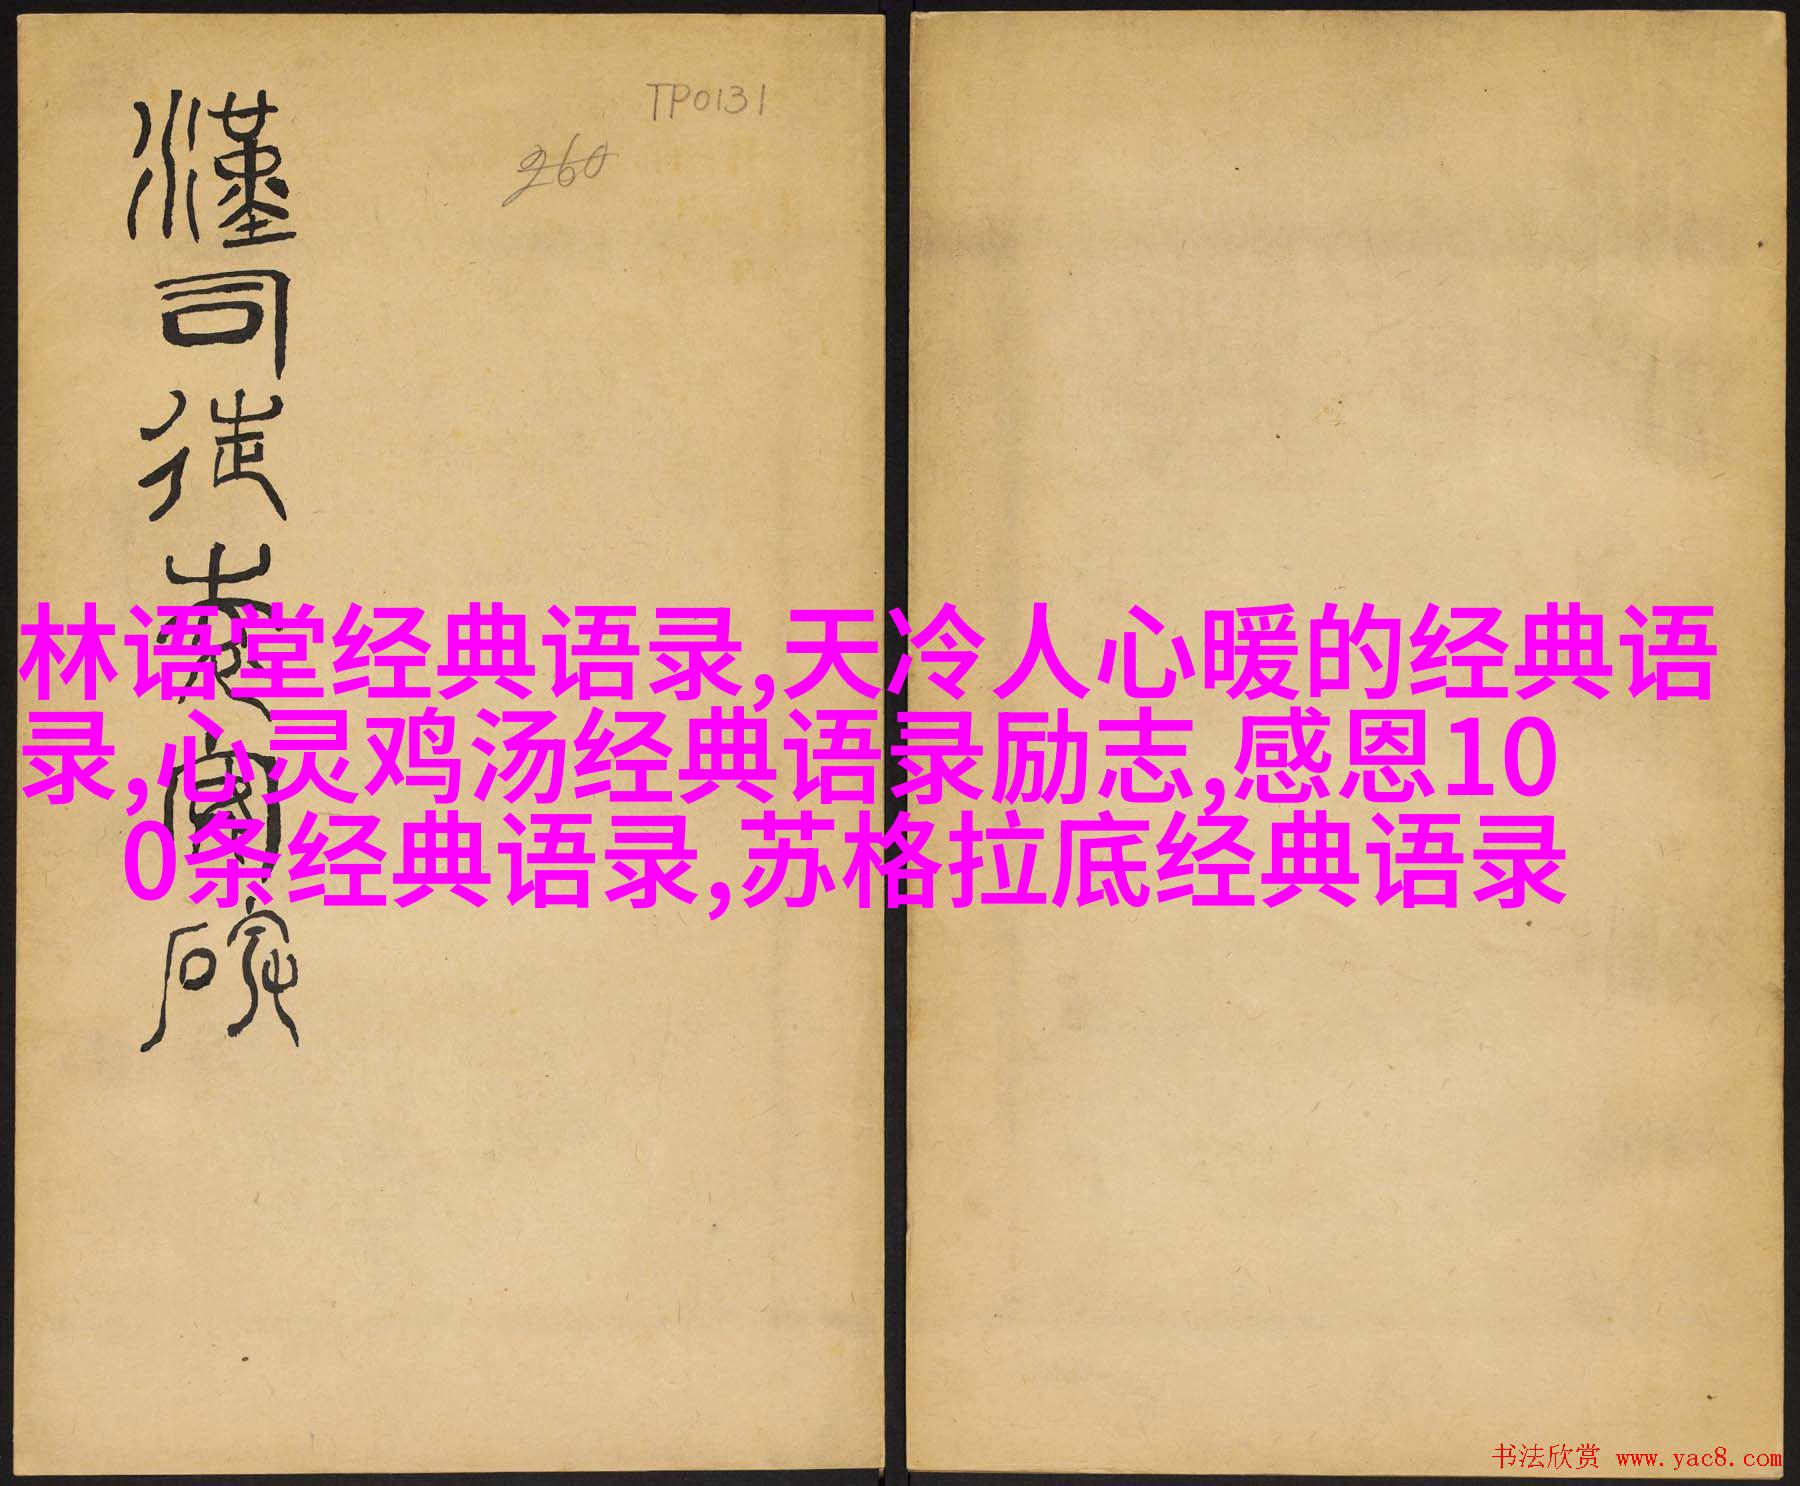 TP0131
260
漢司徒袁安碑
林语堂经典语录,天冷人心暖的经典语
录,心灵鸡汤经典语录励志,感恩10
0条经典语录,苏格拉底经典语录
书法欣赏 www.yac8.com